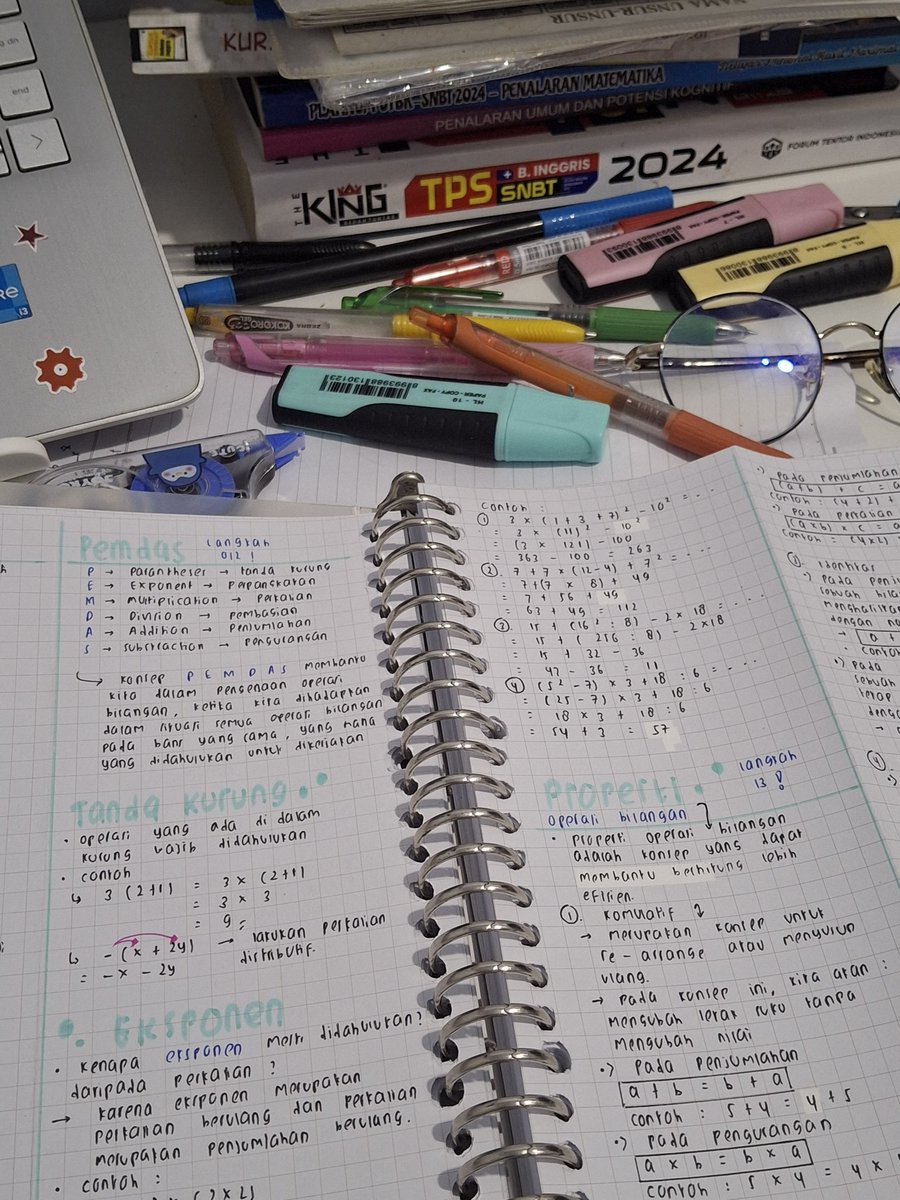 g dn
end
>
i3
KUR.
NAMA UNSUR-UNSUR
SNBT 2024 - PENALARAN MATEMATIKA
PENALARAN UMUM DAN POTENSI KOGNITIF
THE KING
TPS + B. INGGRIS SNBT
2024
FORUM TENTOR INDONESIA
PAPER-COPY-FAX
8993988130093
PAPER-COPY-FAX
8993988130086
KOKORO GEL
ZEBRA
HL - 10
PAPER-COPY-FAX
8993988130123
Pemdas
Langkah
012 !
P → Parantheses → tanda kurung
E → Exponent → Perpangkatan
M → Multiplication → Perkalian
D → Division → pembagian
A → Addition → Penjumlahan
S → Subtraction → Pengurangan
↳ konsep PEMDAS membantu
kita dalam pengenaan operasi
bilangan, ketika kita dihadapkan
dalam situasi semua operasi bilangan
pada baris yang sama, yang mana
yang didahulukan untuk dikerjakan
Tanda kurung
• operasi yang ada di dalam
kurung wajib didahulukan
• contoh
↳ 3(2+1) = 3 × (2+1)
= 3 × 3
= 9
↳ -(x + 2y) → lakukan perkalian
distributif.
= -x - 2y
Eksponen
• kenapa eksponen mesti didahulukan?
daripada perkalian ?
→ karena eksponen merupakan
perkalian berulang dan perkalian
merupakan penjumlahan berulang.
• contoh :
contoh :
① 3 × (1 + 3 + 7)² - 10² = ...
= 3 × (11)² - 10²
= (3 × 121) - 100
= 363 - 100 = 263
② 7 + 7 × (12-4) + 7² = ...
= 7 + (7 × 8) + 49
= 7 + 56 + 49
= 63 + 49 = 112
③ 15 + (16² : 8) - 2 × 18 = ...
= 15 + (256 : 8) - 2×18
= 15 + 32 - 36
= 47 - 36 = 11
④ (5² - 7) × 3 + 18 : 6 = ...
= (25 - 7) × 3 + 18 : 6
= 18 × 3 + 18 : 6
= 54 + 3 = 57
Properti
Langkah
13 !
operasi bilangan
• Properti operasi bilangan
adalah konsep yang dapat
membantu berhitung lebih
efisien.
① Komutatif
→ merupakan konsep untuk
re-arrange atau menyusun
ulang.
→ pada konsep ini, kita akan :
mengubah letak suku tanpa
mengubah nilai
•) Pada penjumlahan
a + b = b + a
contoh : 5 + 4 = 4 + 5
•) Pada pengurangan
a × b = b × a
contoh : 5 × 4 = 4 ×
•) pada penjumlahan
(a+b) + c = a
contoh : (4+2) +
•) pada perkalian
(a×b) × c = a
contoh : (4×2)
Identitas
•) pada
sebuah
dengan
a +
• contoh
•) pada
sebuah
tetap
④